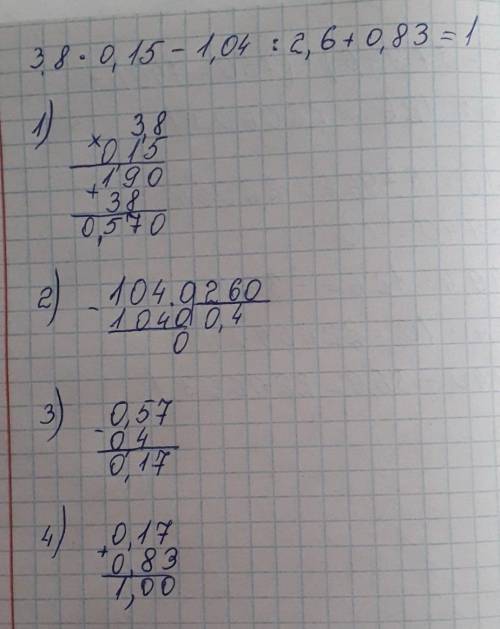 3,8 · 0,15 - 1,04 : 2,6 + 0,83 = 1
1)
3,8
× 0 15
+ 190
38
0,570
2)
- 104.0 260
1040 0,4
0
3)
- 0,57
0 4
0,17
4)
0,17
+ 0,83
1,00